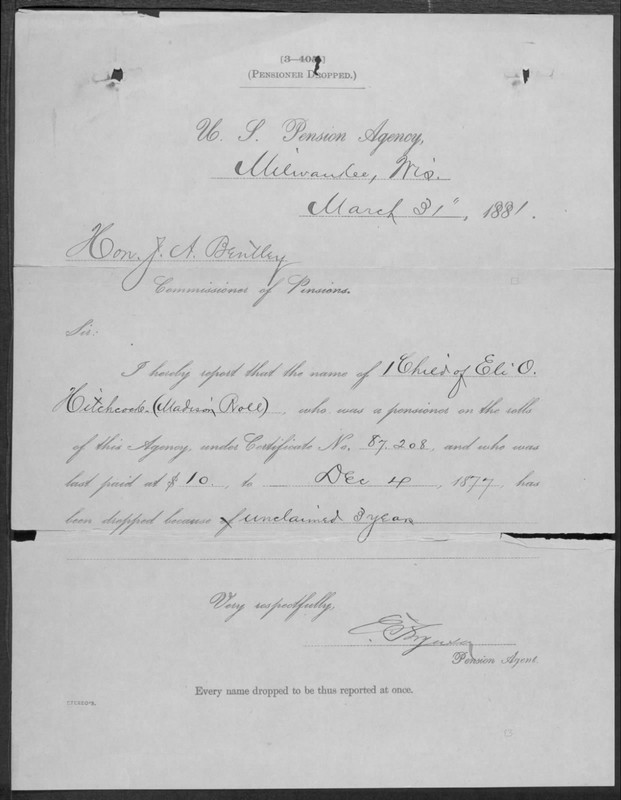 (PENSIONER DROPPED.)
U. S. Pension Agency,
Milwaukee, Wis.
March 31", 1881.
Hon. J. A. Bentley
Commissioner of Pensions.
Sir:
I hereby report that the name of 1 Child of Eli O.
Hitchcock (Madison Roll), who was a pensioner on the rolls
of this Agency, under Certificate No. 87.208, and who was
last paid at $10, to Dec 4, 1877, has
been dropped because of unclaimed 3 years
Very respectfully,
Pension Agent.
Every name dropped to be thus reported at once.